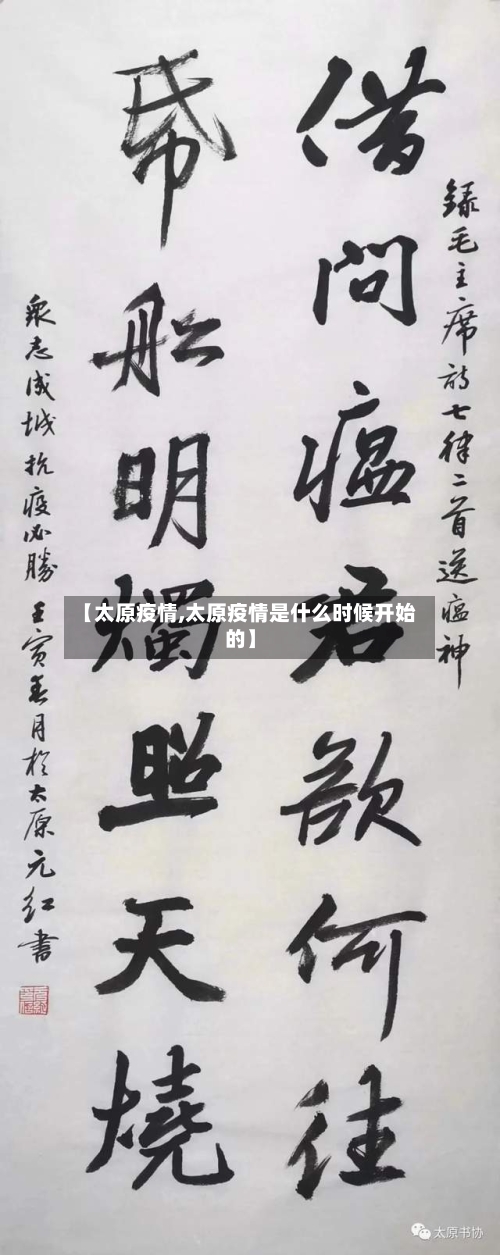 錄毛主席诗七律二首送瘟神
借問瘟君欲何往
帋船明燭照天燒
衆志成城 抗疫必勝 壬寅春月於太原元红書
【太原疫情,太原疫情是什么时候开始
的】
太原书协